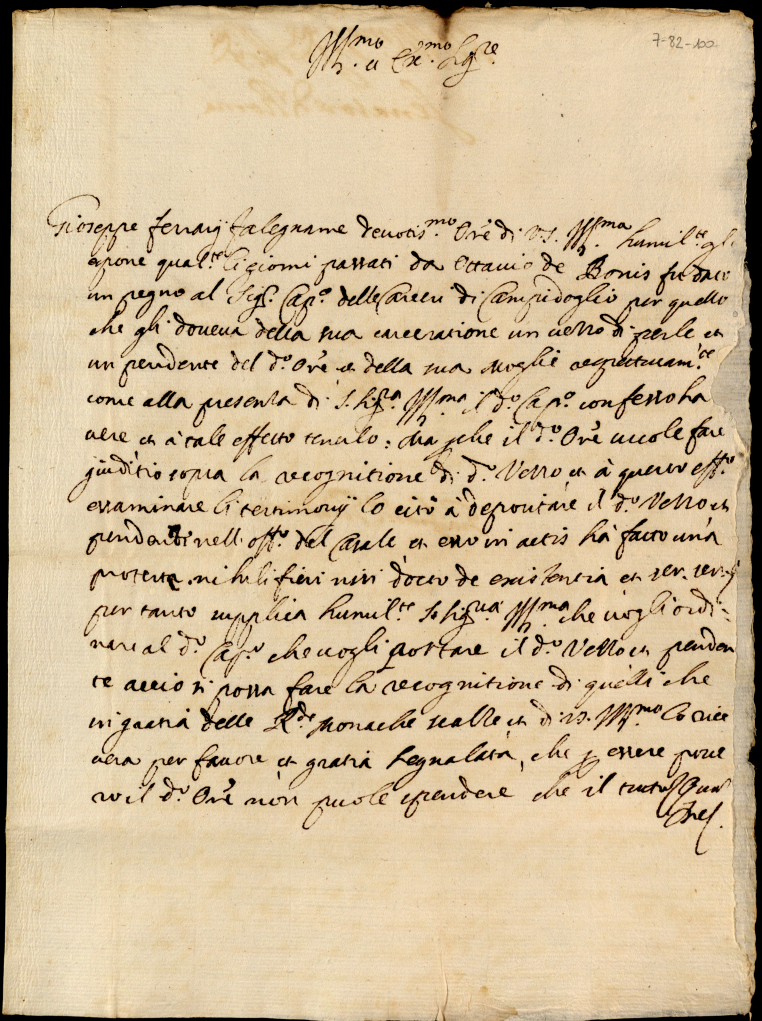 7-82-100
Ill.mo et Ecc.mo Sig.re
Gioseppe ferrarij falegname devotis.mo Ore di V.S. Ill.ma humil.te gli
espone qual.te li giorni passati da Ottavio de Bonis fu dato
in pegno al Sig.r Cap.o delle Carceri di Campidoglio per quello
che gli doveva della sua carceratione un vezzo di perle et
un pendente del d.o Ore et della sua moglie respectivam.te
come alla presenza di S. Sig.ra Ill.ma il d.o Cap.o confesso ha
vere et à tale effetto tenerlo: Ma perche il d.o Ore vuole fare
giuditio sopra la recognitione di d.o Vezzo et à questo eff.o
essaminare li testimonij lo citò à deportare il d.o Vezzo et
pendente nell off.o del Casale et esso in actis hà fatto una
protesta nihil fieri nisi docto de existentia et
per tanto supplica humil.te S. Sig.ria Ill.ma che vogli ordi-
nare al d.o Cap.o che vogli portare il d.o Vezzo et penden
te accio si possa fare la recognitione di quelli che
in gratia delle R.de Monache scalze et di V.S. Ill.mo lo rice
vera per favore et gratia segnalata, che p essere pove
ro il d.o Ore non puole spendere che il tutto